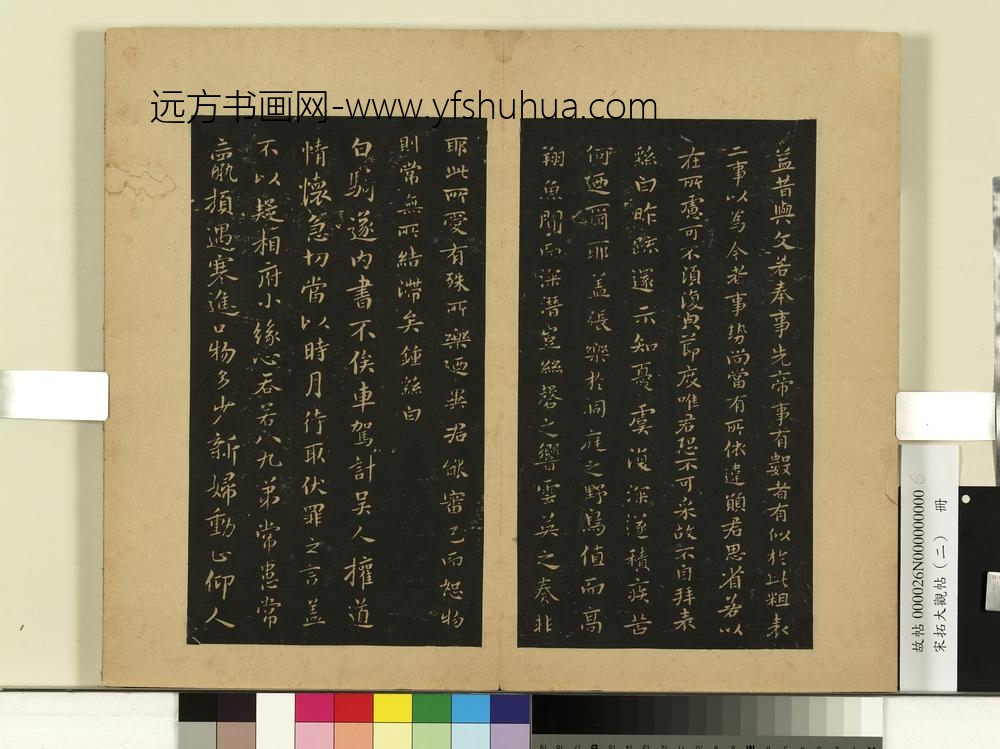 远方书画网-www.yfshuhua.com
益昔與文若奉事先帝事有數者有似於此粗表
二事以為今者事勢尚當有所依違願君思省若以
在所慮可不須復與節度唯君恐不可采故不自拜表
繇白昨疏還示知憂虞復深遂積疾苦
何迺爾耶蓋張樂於洞庭之野鳥值而高
翔魚聞而深潛豈絲磬之響雲英之奏非
耶此所愛有殊所樂迺異君能審己而恕物
則常無所結滯矣鍾繇白
白騎遂內書不俟車駕計吴人權道
情懷急切當以時月待取伏罪之言蓋
不以疑相府小緣心吞若八九弟常患常
羸損遇寒進口物多少新婦動止仰人
故帖 000026N000000000 6
宋拓大觀帖（二）　冊